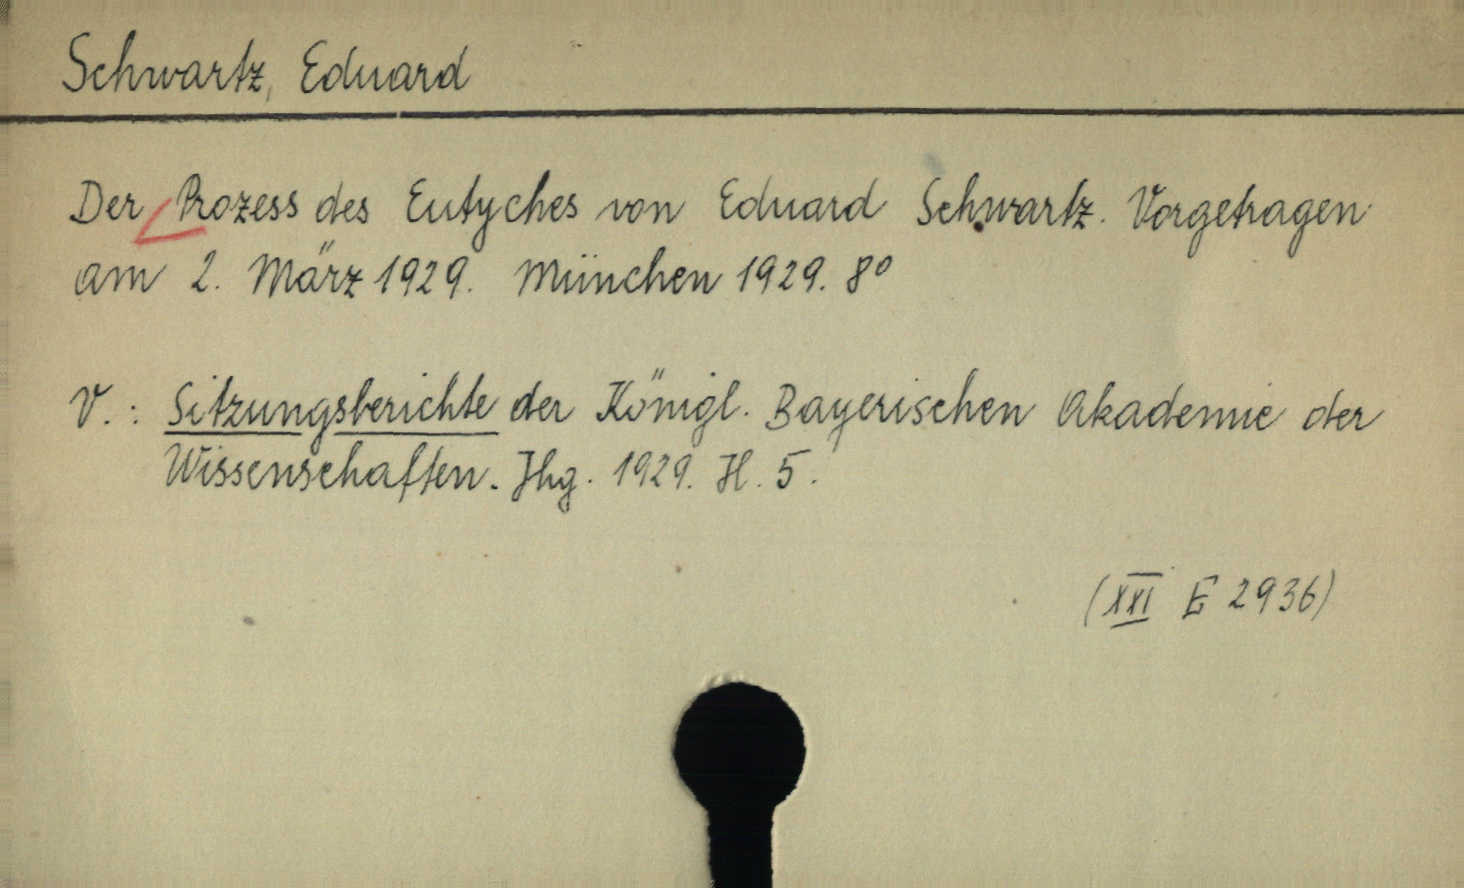 Schwartz, Eduard
Der Prozess des Eutyches von Eduard Schwartz. Vorgetragen
am 2. März 1929. München 1929. 8⁰
V.: Sitzungsberichte der Königl. Bayerischen Akademie der
Wissenschaften. Jhg. 1929. H. 5.
(XXI E 2936)